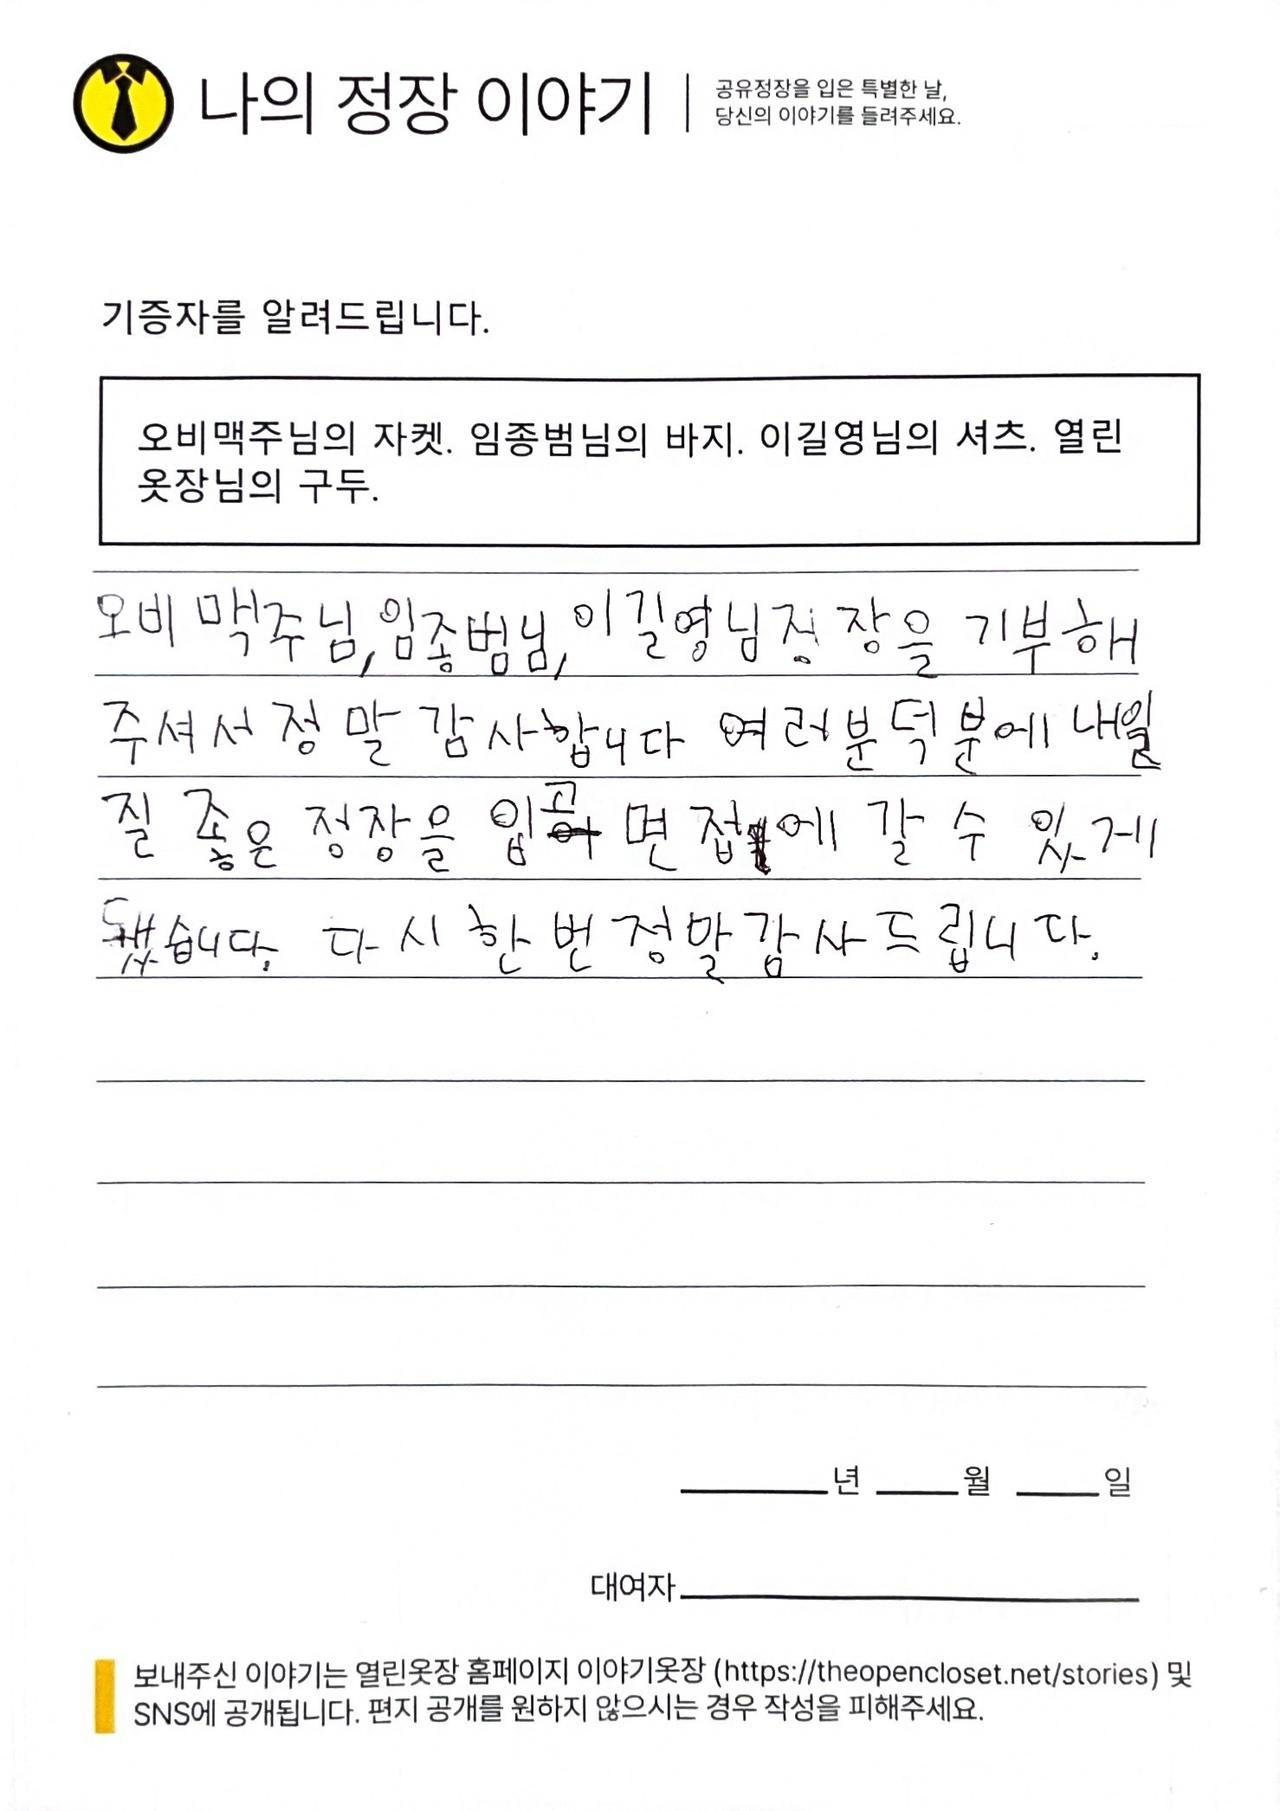 나의 정장 이야기
공유정장을 입은 특별한 날,
당신의 이야기를 들려주세요.
기증자를 알려드립니다.
오비맥주님의 자켓. 임종범님의 바지. 이길영님의 셔츠. 열린
옷장님의 구두.
오비맥주님, 임종범님, 이길영님 정장을 기부해
주셔서 정말 감사합니다 여러분 덕분에 내일
질 좋은 정장을 입고 면접에 갈 수 있게
됐습니다. 다시 한번 정말 감사드립니다.
년 월 일
대여자
보내주신 이야기는 열린옷장 홈페이지 이야기옷장 (https://theopencloset.net/stories) 및
SNS에 공개됩니다. 편지 공개를 원하지 않으시는 경우 작성을 피해주세요.